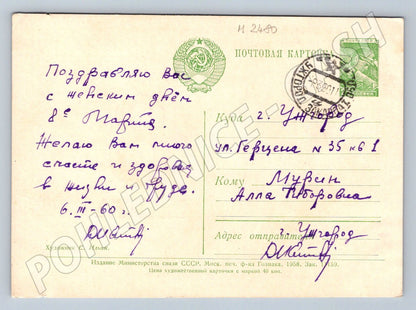 М 2480
ПОЧТОВАЯ КАРТОЧКА
Поздравляю Вас
с женским днём
8ое Марта.
Желаю Вам много
счастья и здоровья
в жизни и труде.
6.III-60г.
Художник С.
Куда г. Ужгород
ул. Герцена № 35 кв 1
Кому
Мурин
Алла
Адрес отправителя: г. Ужгород
Издание Министерства связи СССР. Моск. печ. ф-ка Гознака. 1958. Зак.
Цена художественной карточки с маркой 40 коп.
УЖГОРОД